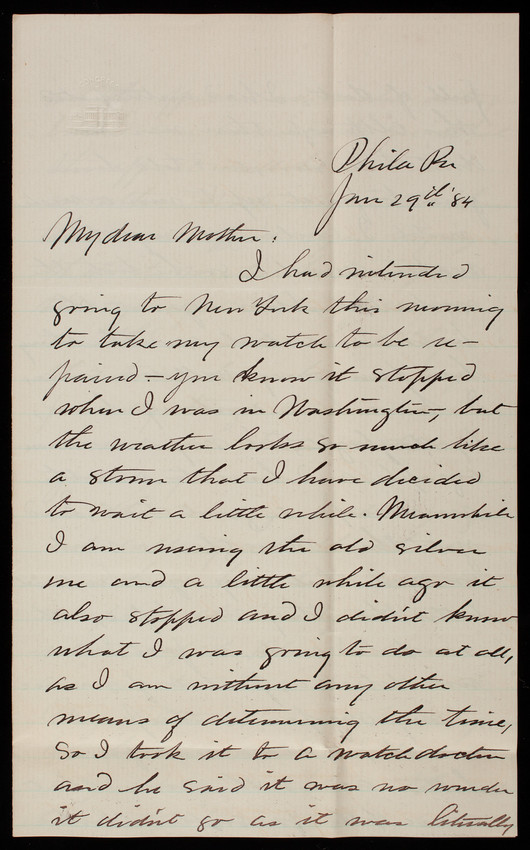 Phila Pa
Jan 29th '84
My dear Mother:
I had intended
going to New York this morning
to take my watch to be re-
paired - you know it stopped
when I was in Washington, but
the weather looks so much like
a storm that I have decided
to wait a little while. Meanwhile
I am using the old silver
one and a little while ago it
also stopped and I didn't know
what I was going to do at all,
as I am without any other
means of determining the time,
so I took it to a watch doctor
and he said it was no wonder
it didn't go as it was literally